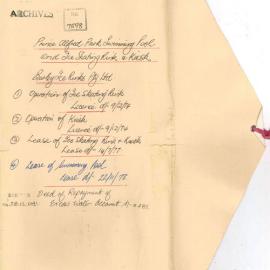 ARCHIVES
7598
Prince Alfred Park Swimming Pool
and Ice Skating Rink & Kiosk
Burley Ice Rinks Pty Ltd
① Operation of Ice Skating Rink
Licence df. 9/2/76
② Operation of Kiosk
Licence df. 9/2/76
③ Lease of Ice Skating Rink & Kiosk
Lease df.
④ Lease of Swimming Pool
Lease df.
Deed of Repayment of
Excess Water Account